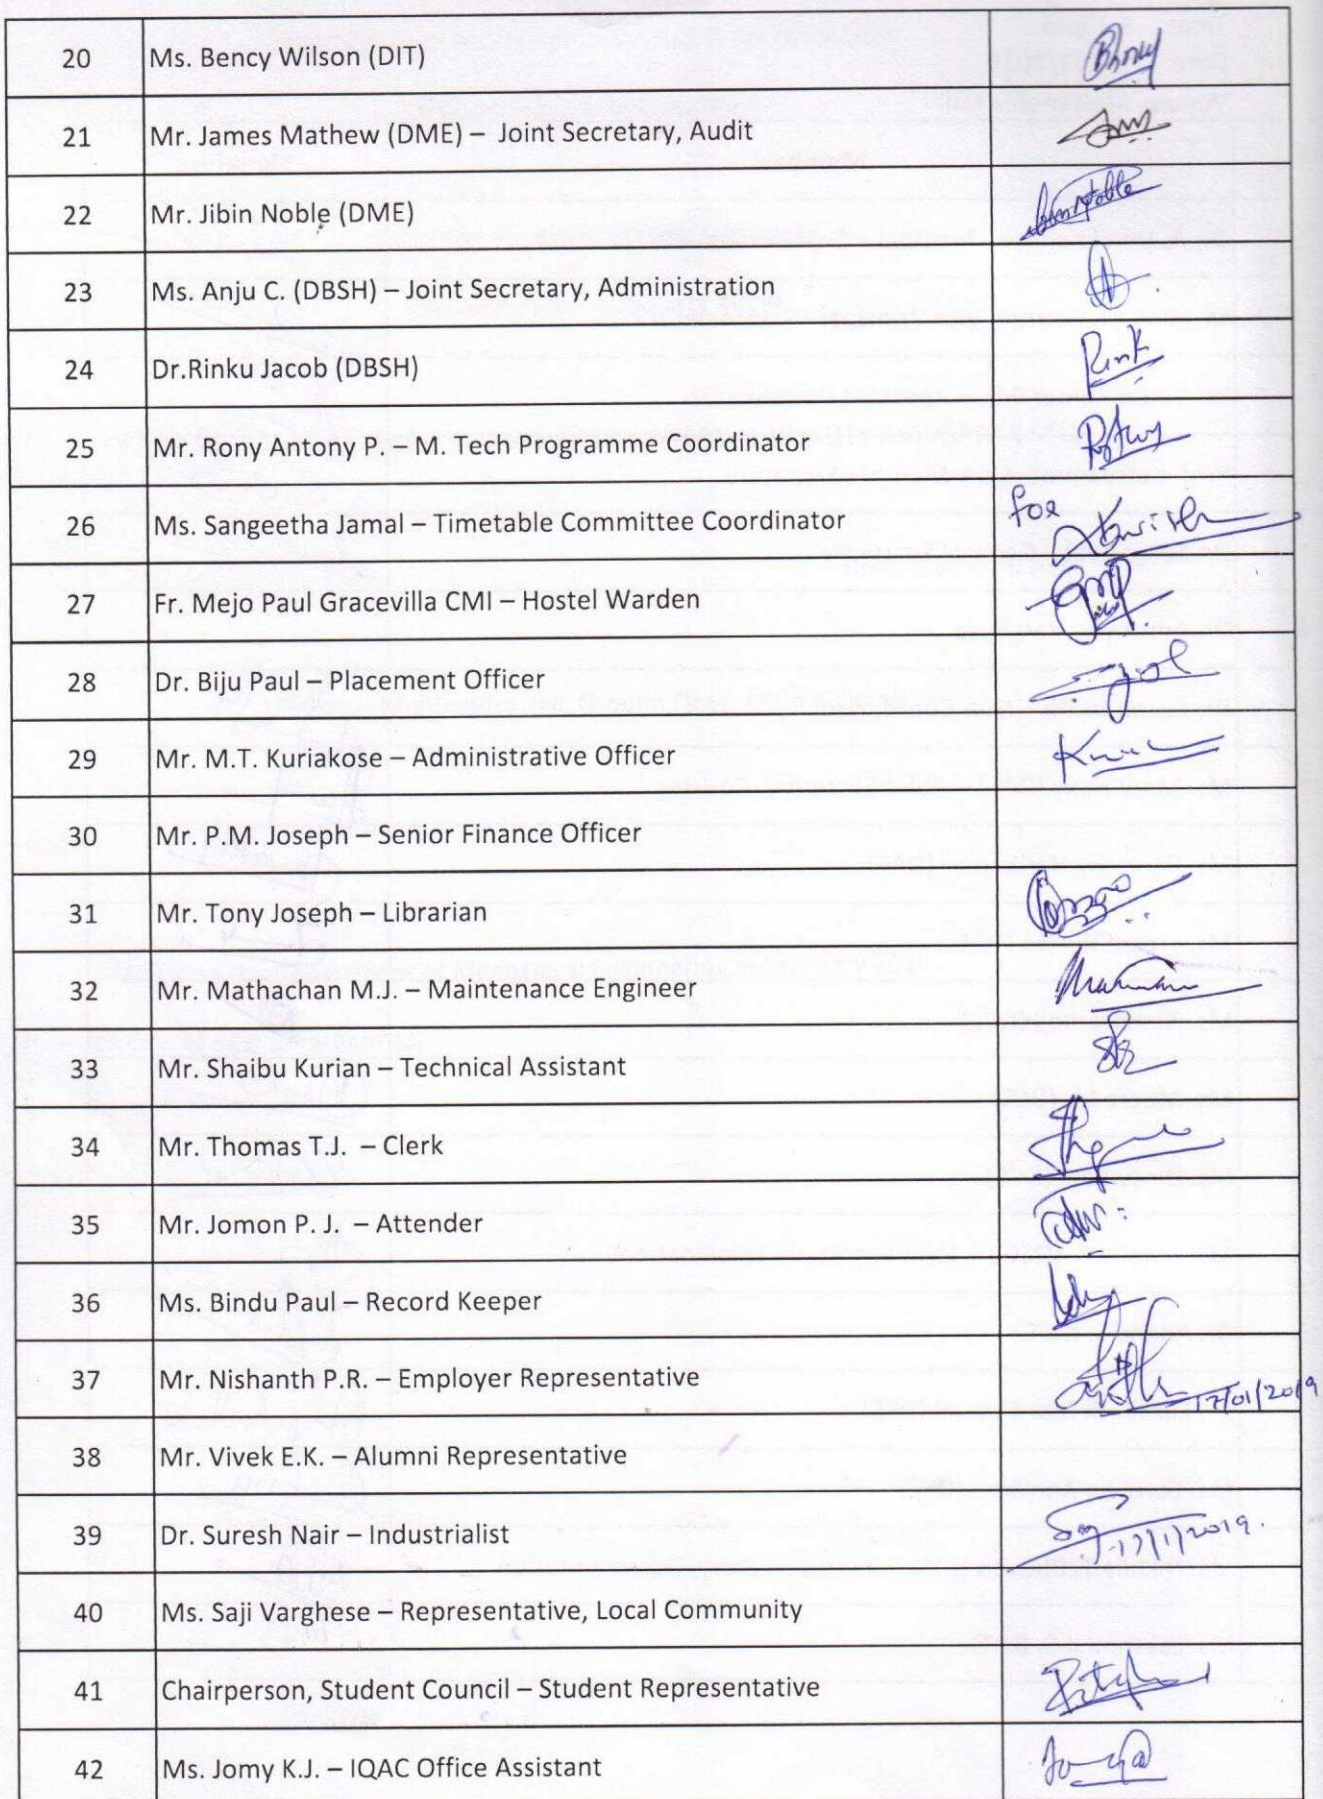 20 Ms. Bency Wilson (DIT) Bency
21 Mr. James Mathew (DME) – Joint Secretary, Audit
22 Mr. Jibin Noble (DME)
23 Ms. Anju C. (DBSH) – Joint Secretary, Administration
24 Dr.Rinku Jacob (DBSH) Rink
25 Mr. Rony Antony P. – M. Tech Programme Coordinator
26 Ms. Sangeetha Jamal – Timetable Committee Coordinator for
27 Fr. Mejo Paul Gracevilla CMI – Hostel Warden
28 Dr. Biju Paul – Placement Officer
29 Mr. M.T. Kuriakose – Administrative Officer
30 Mr. P.M. Joseph – Senior Finance Officer
31 Mr. Tony Joseph – Librarian
32 Mr. Mathachan M.J. – Maintenance Engineer
33 Mr. Shaibu Kurian – Technical Assistant
34 Mr. Thomas T.J. – Clerk
35 Mr. Jomon P. J. – Attender
36 Ms. Bindu Paul – Record Keeper
37 Mr. Nishanth P.R. – Employer Representative 17/01/2019
38 Mr. Vivek E.K. – Alumni Representative
39 Dr. Suresh Nair – Industrialist 17/1/2019.
40 Ms. Saji Varghese – Representative, Local Community
41 Chairperson, Student Council – Student Representative
42 Ms. Jomy K.J. – IQAC Office Assistant